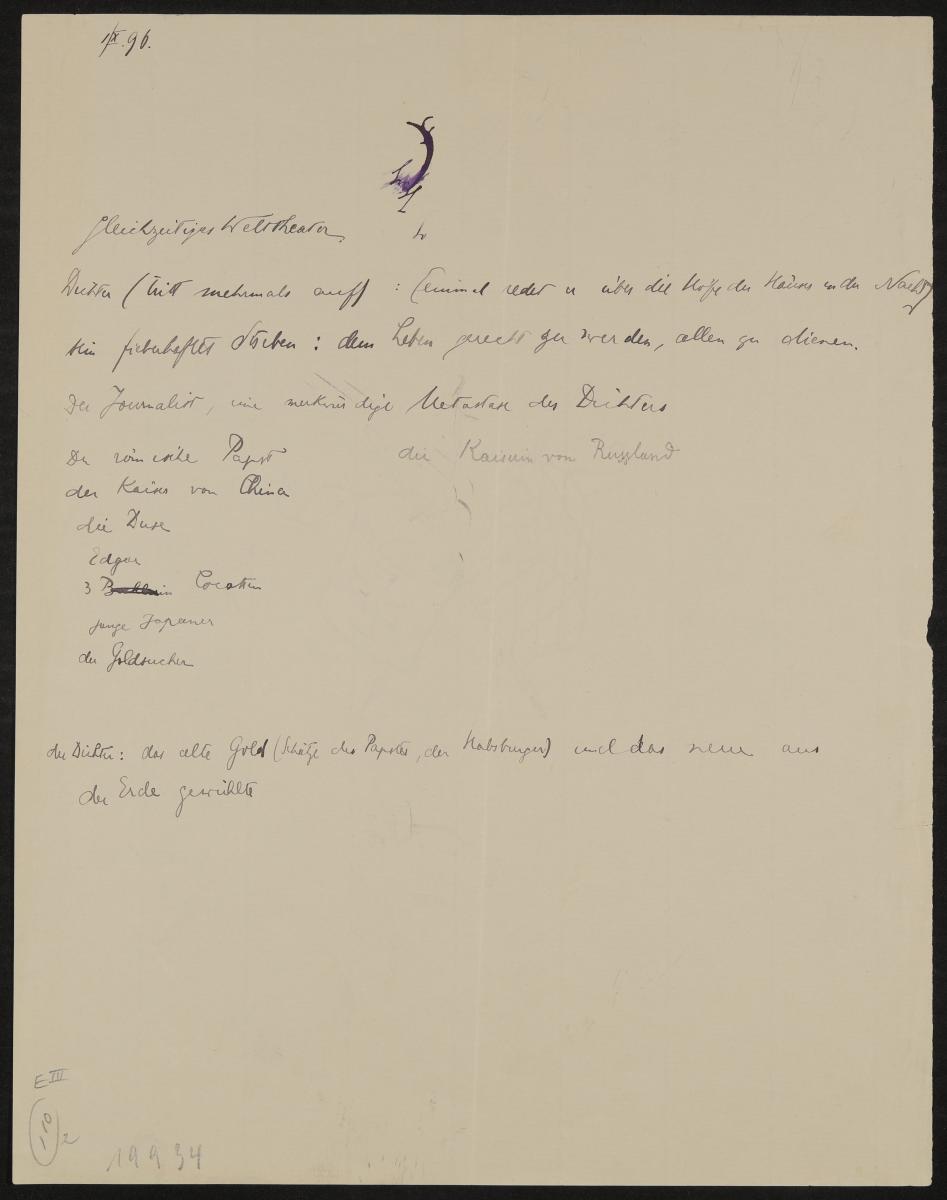 1/IX.96.
Gleichzeitiges Welttheater.
Dichter (tritt mehrmals auf) : (einmal redet er über die Höfe der Häuser in der Nacht)
sein fieberhaftes Streben : dem Leben gerecht zu werden, allen zu dienen.
Der Journalist, eine merkwürdige Metastase des Dichters
Der römische Papst die Kaiserin von Russland
der Kaiser von China
die Duse
Edgar
3 Cocotten
junge Japaner
der Goldsucher
der Dichter: das alte Gold (Schätze des Papstes, der Habsburger) und das neue aus
der Erde gewühlte
E III
110
2
19934